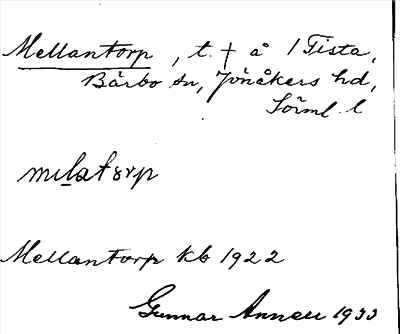 Mellantorp, t. † å 1 Tista,
Bärbo sn, Jönåkers hd,
Sörml. l
mɩlatɷrp
Mellantorp kb 1922
Gunnar Annell 1933